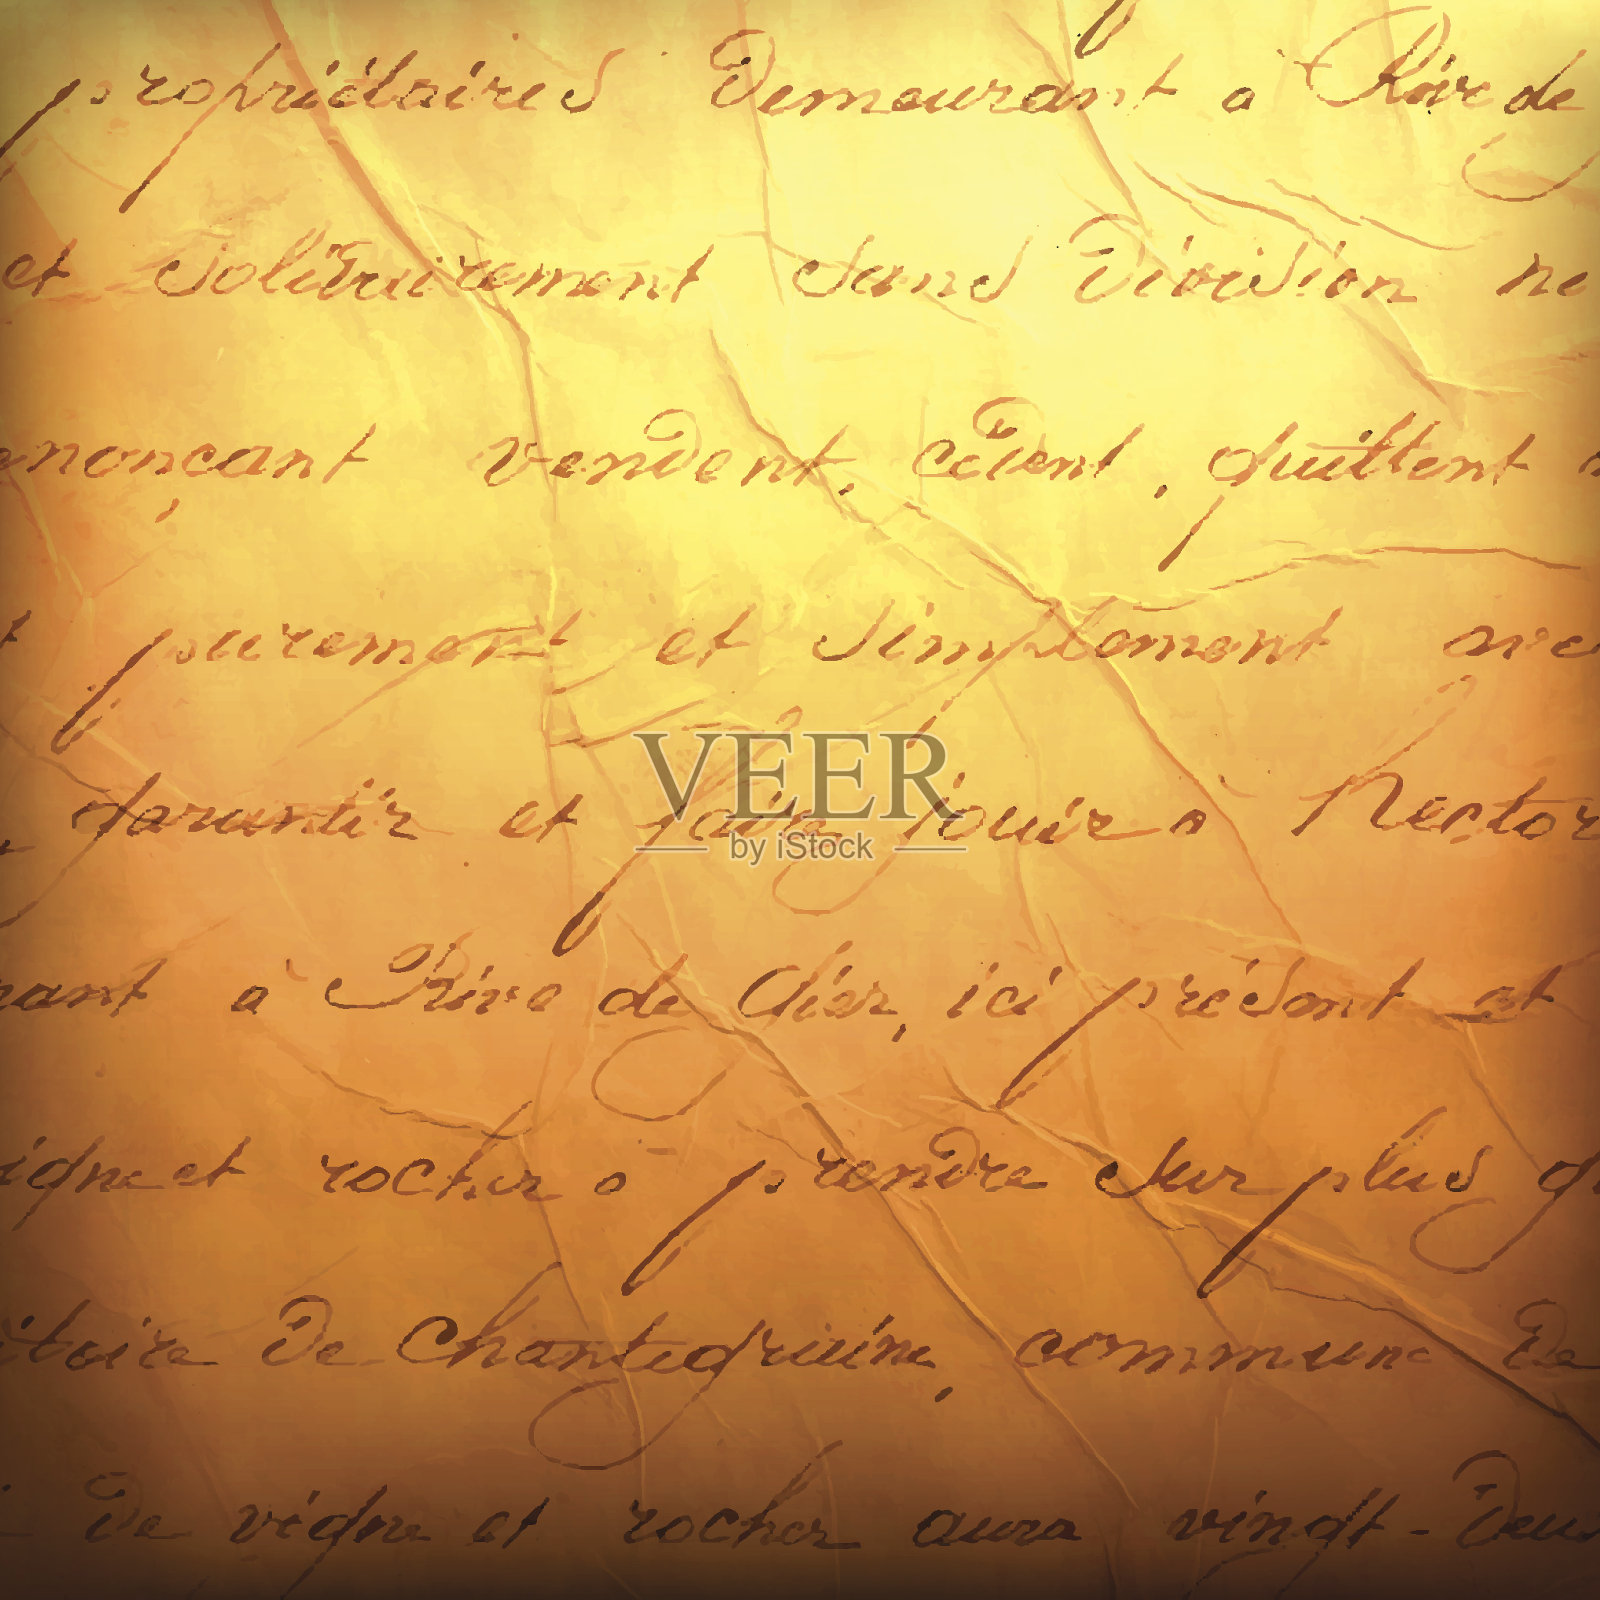 propriétaires Demeurant à Rive de
et solitairement sans division ne
nonçant vendent, cèdent, quittent
t purement et simplement avec
garantir et faire jouir à Nector
rant à Rive de Gier, ici présent et
igne et rocher à prendre sur plus g
étoire De Chantegraine, commune De
De vigne et rocher aura vingt-Deux
VEER
by iStock